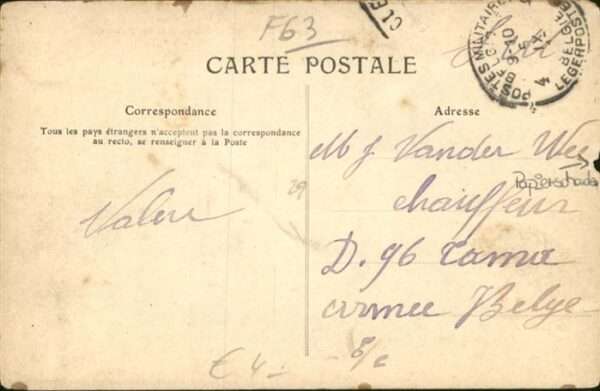 F63
CLE
POSTES MILITAIRES BELGIQUE
LEGERPOSTERIJ BELGIE
CARTE POSTALE
Correspondance
Tous les pays étrangers n'acceptent pas la correspondance
au recto, se renseigner à la Poste
Adresse
M J Vander Wee
Papierschade
chauffeur
D. 96
armée Belge
Valere
29
€ 4-